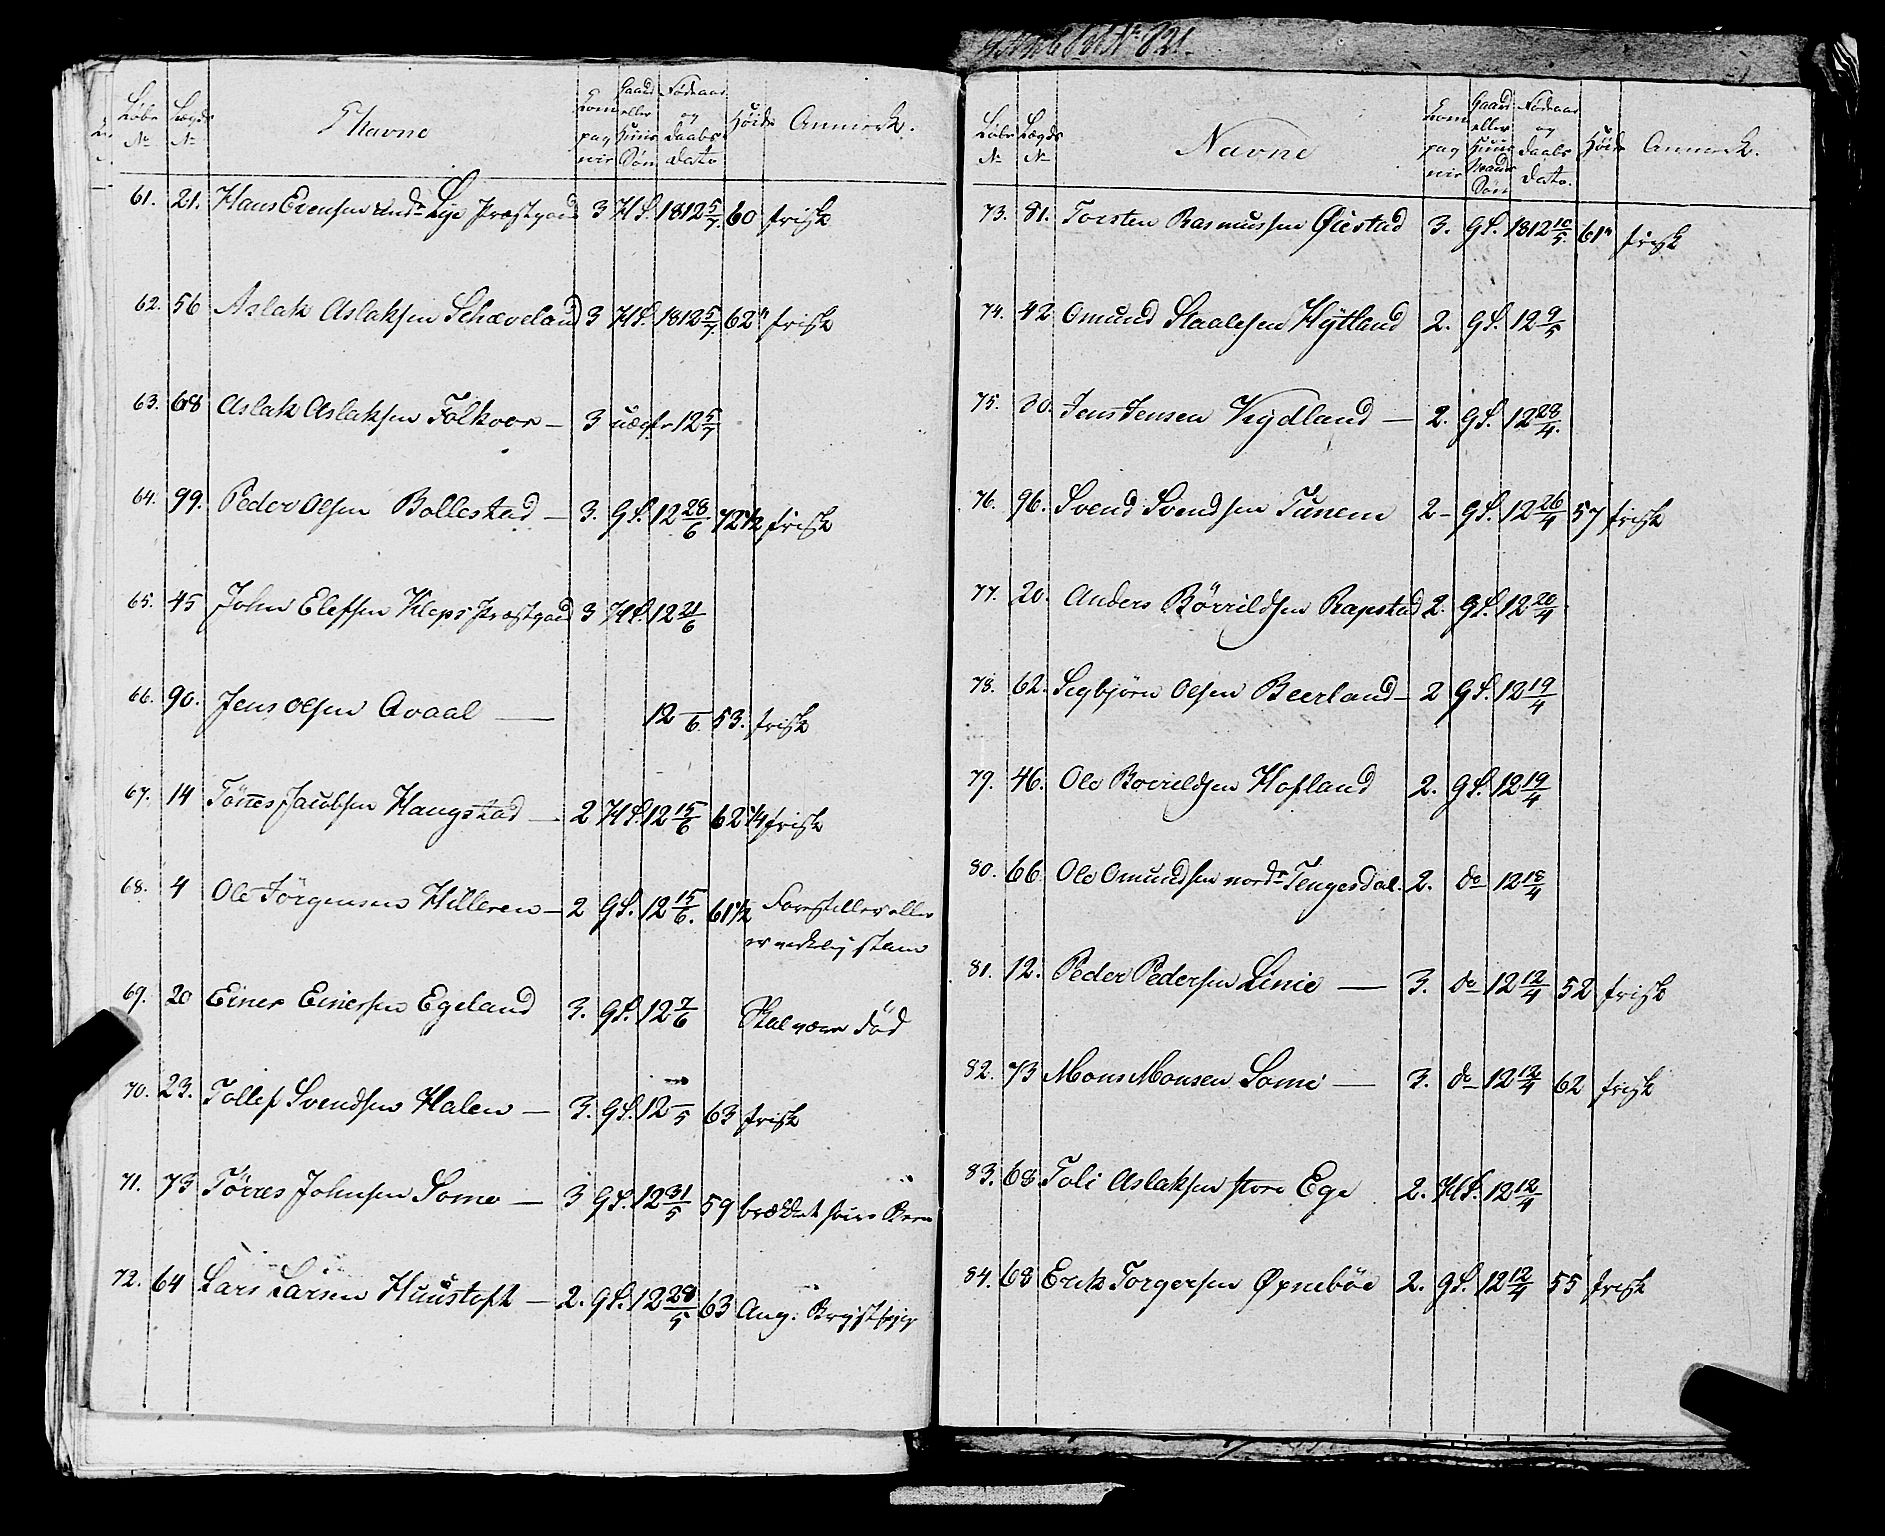 Løbe No Lægds No Navne Kompagnie Gaard eller Huus Søn Fødeaar og Daabs Dato Høide Anmerk.
61. 21. Hans Evensen Lye Præstgaard 3 HS. 1812 5/7 60 frisk
62. 56 Aslak Aslaksen Schæveland 3 HS. 1812 5/7 62" frisk
63. 68 Aslak Aslaksen Folkvor — 3 uægte 12 5/7
64. 99. Peder Olsen Bollestad — 3. GS. 12 28/6 72 1/2 frisk
65. 45 John Elefsen Kleps Præstgaard 3 HS. 12 21/6
66. 90. Jens Olsen Avaal — 12 —/6 53. frisk
67. 14 Tönes Jacobsen Haugstad — 2 HS. 12 15/6 62 1/4 frisk
68. 4 Ole Jörgensen Hilleren — 2 GS. 12 15/6. 61 1/2 Forestiller eller
er virkelig stam
69. 20 Einer Einersen Egeland 3. GS. 12 7/6 Skal være död
70. 23. Tollef Svendsen Halen — 3. GS. 12 —/5 63 frisk
71. 73 Törres Johnsen Some — 3 GS. 12 31/5 59 brækket høire Been
72. 64 Lars Larsen Huustoft — 2. GS. 12 28/5 63 Ang. Brystsyg
No 821.
Løbe No Lægds No Navne Kompagnie Gaard eller Huus Mands Søn Fødeaar og Daabs Dato. Høide Anmerk.
73. 81. Torsten Rasmussen Øiestad 3. GS. 1812 10/5. 61" frisk
74. 42 Omund Staalesen Hytland 2. GS. 12 9/5
75. 30. Jens Jensen Vigdland — 2. GS. 12 28/4.
76. 96. Svend Svendsen Tunem 2 — GS. 12 26/4 57 frisk
77. 20. Anders Börrildsen Rapstad 2. GS. 12 20/4
78. 62. Segbjörn Olsen Beerland — 2 GS. 12 19/4
79. 46. Ole Borrildsen Hofland 2. GS. 12 19/4
80. 66. Ole Omundsen nordr Tengesdal. 2. do 12 18/4
81. 12. Peder Pedersen Linie — 3. do 12 12/4 52 frisk
82. 73 Mons Monsen Somi — 3. do 12 12/4 62 frisk
83. 68 Toli Aslaksen store Ege 2. HS. 12 12/4
84. 68 Erik Torgersen Øpnebøe 2. GS. 12 12/4 55 frisk